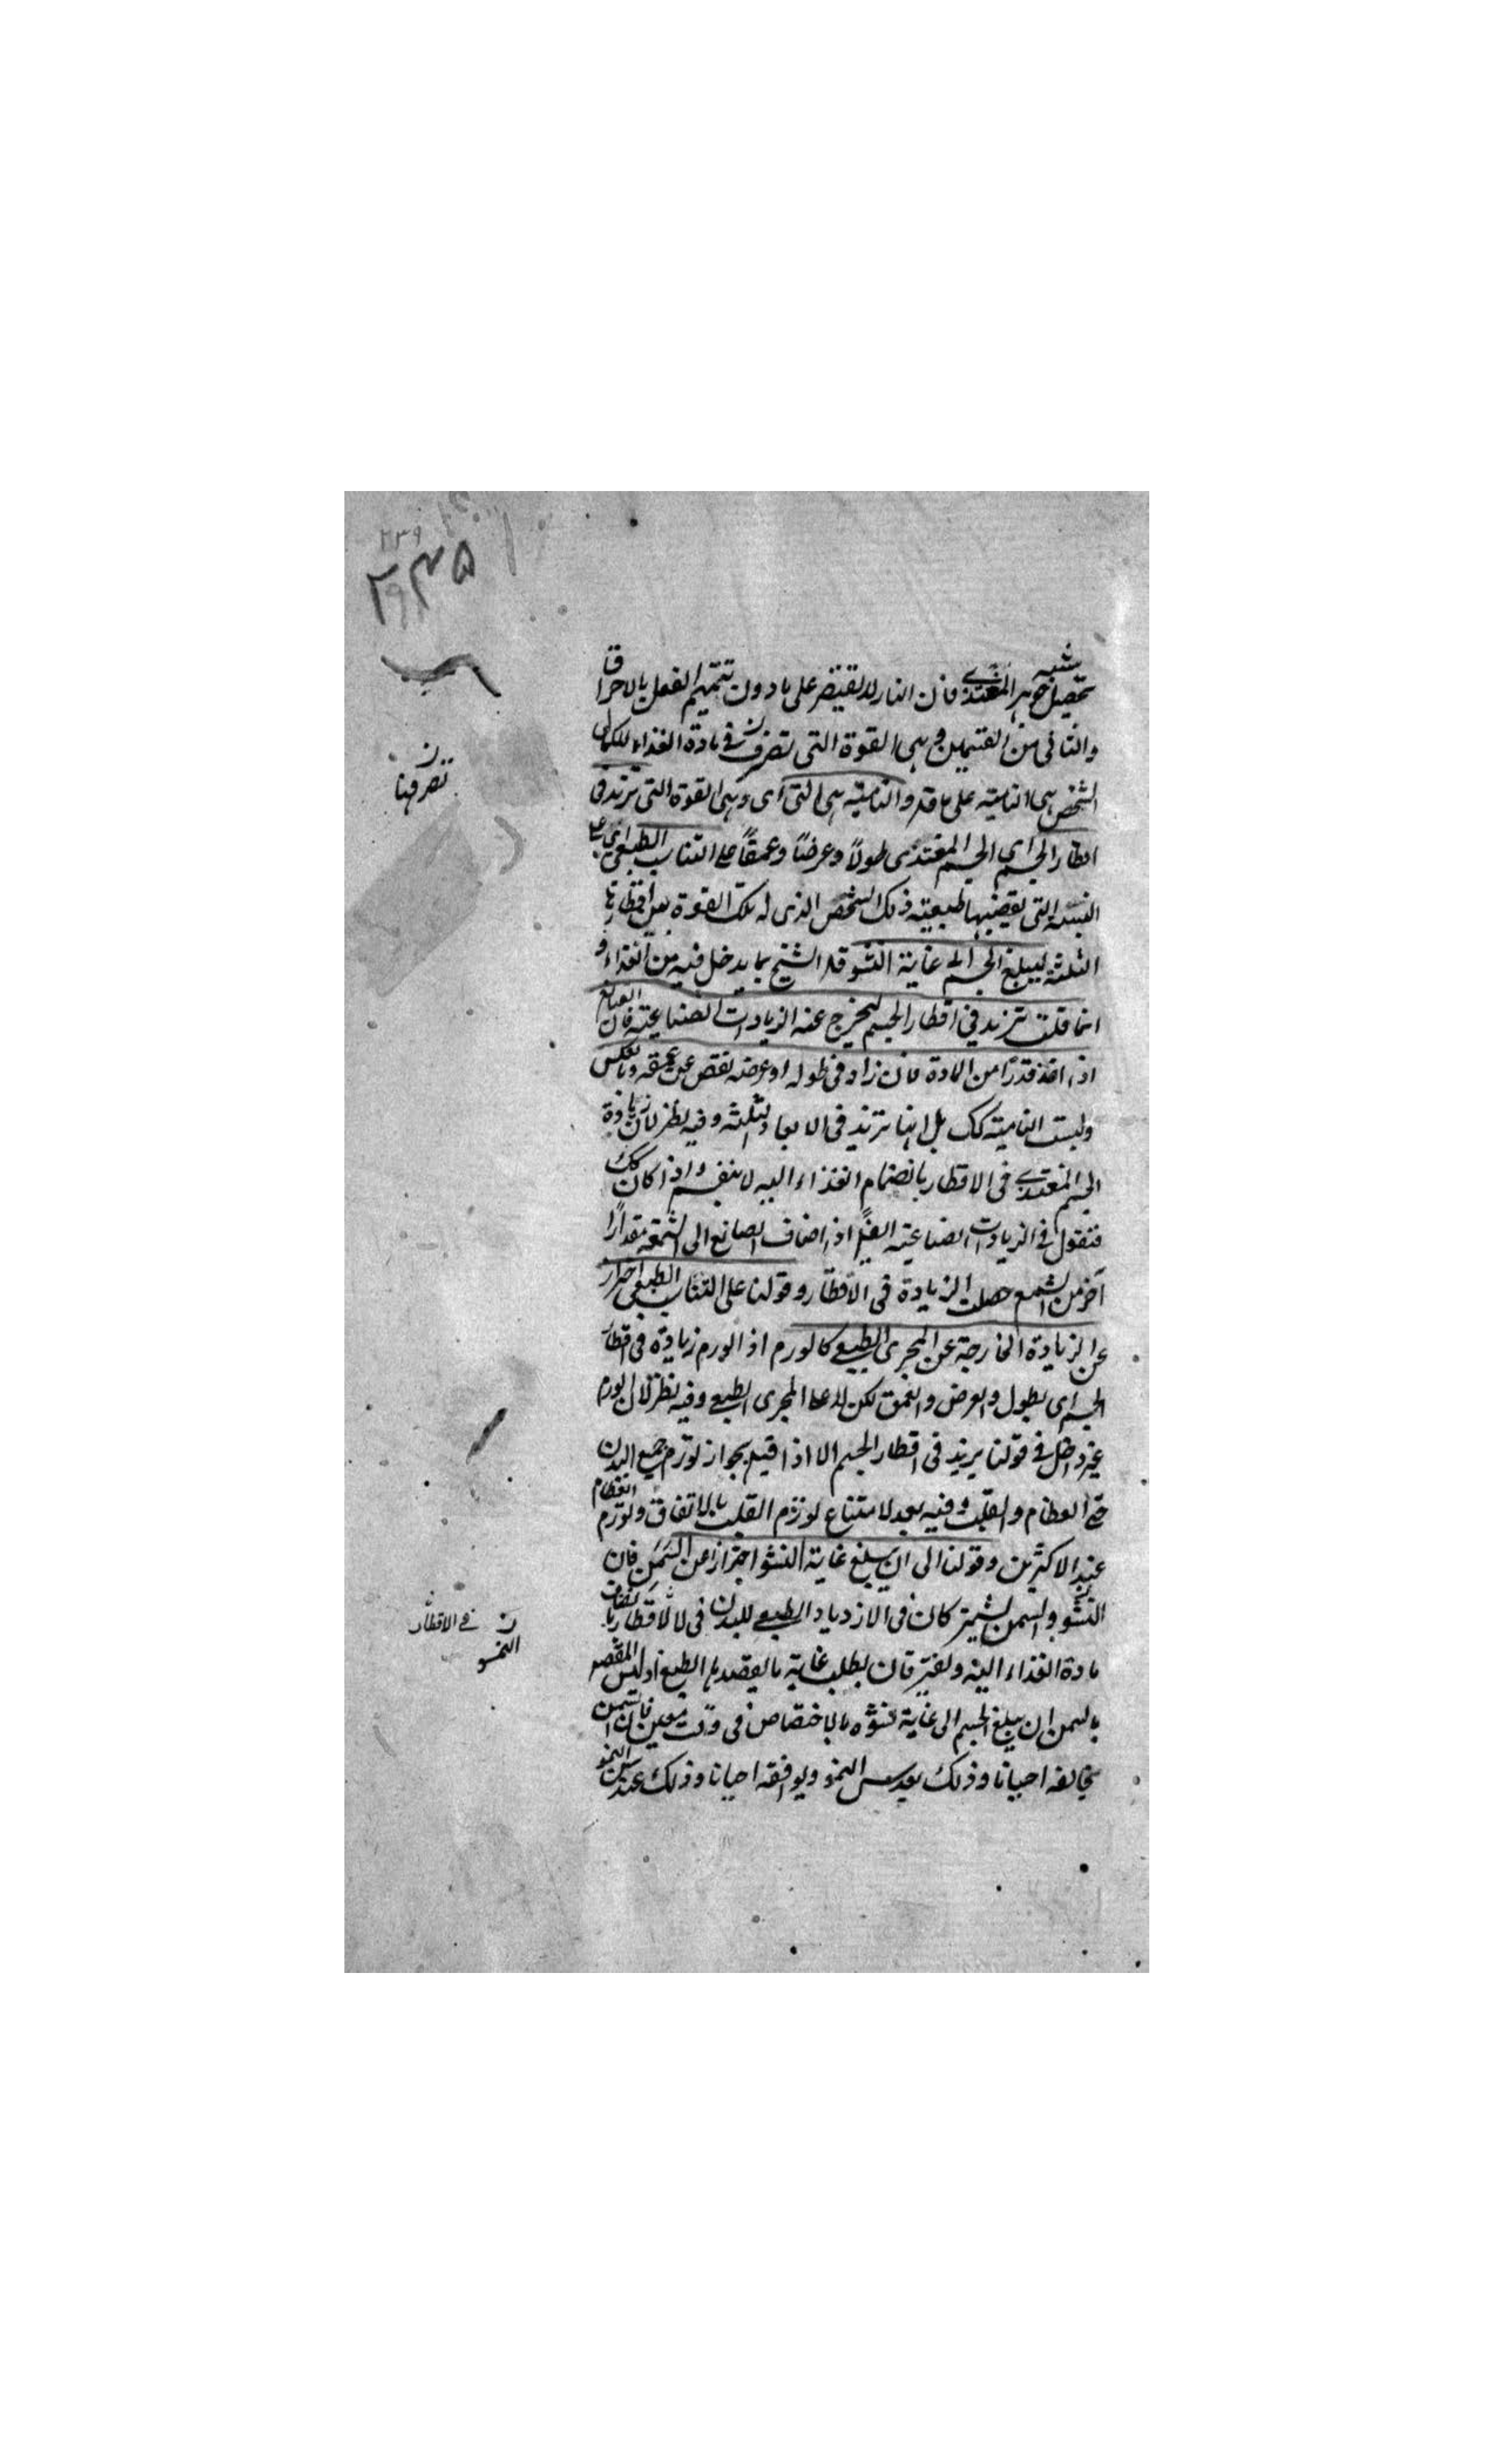 ٢٣٩
٢٣٥
تحصيل جوهر شبيه المغتذى فان النار لا تقتصر على ما دون تتميم الفعل بالاحراق
والثانى من القسمين وهى القوة التى تتصرف فى مادة الغذاء للكمال
الشخص هى النامية على ما قد والنامية هى التى اى وهى القوة التى تزيد فى
اقطار الجسم اى الجسم المغتذى طولاً وعرضًا وعمقًا على التناسب الطبيعى اى على
النسبة التى تقتضيها طبيعة ذلك الشخص الذى له تلك القوة بين اقطارها
الثلثة ليبلغ الجسم الى غاية النشو قد الشيخ بما يدخل فيه من الغذاء و
انما قلت تزيد فى اقطار الجسم ليخرج عنه الزيادات الصناعية فان الصانع
اذا اخذ قدرًا من المادة فان زاد فى طوله او عرضه نقص عن عمقه وبالعكس
وليست النامية كك بل انها تزيد فى الابعاد الثلثة وفيه نظر لان زيادة
الجسم المغتذى فى الاقطار بانضمام الغذاء اليه لا بنفسه واذا كان كك
فنقول فى الزيادات الصناعية ايضًا اذا اضاف الصانع الى الشمعة مقدارًا
آخر من الشمع حصلت الزيادة فى الاقطار وقولنا على التناسب الطبيعى احتراز
عن الزيادة الخارجة عن المجرى الطبيعى كالورم اذ الورم زيادة فى اقطار
الجسم اى الطول والعرض والعمق لكن لا على المجرى الطبيعى وفيه نظر لان الورم
غير داخل فى قولنا يزيد فى اقطار الجسم الا اذا قيل بجواز تورم جميع البدن
حتى العظام والقلب وفيه بعد لامتناع تورم القلب بالاتفاق وتورم العظام
عند الاكثرين وقولنا الى ان يبلغ غاية النشو احترازًا عن السمن فان
النشو والسمن يشتركان فى الازدياد الطبيعى للبدن فى الاقطار بانضياف
مادة الغذاء اليه ويفترقان بطلب غاية ما يقصدها الطبع اذ ليس المقصد
بالسمن ان يبلغ الجسم الى غاية نشوه بالاختصاص فى وقت معين فان السمن
يخالفه احيانا وذلك بعد سن النمو ويوافقه احيانا وذلك عند سن النمو
ن
تصرفها
ن
فى الاقطار
النمو